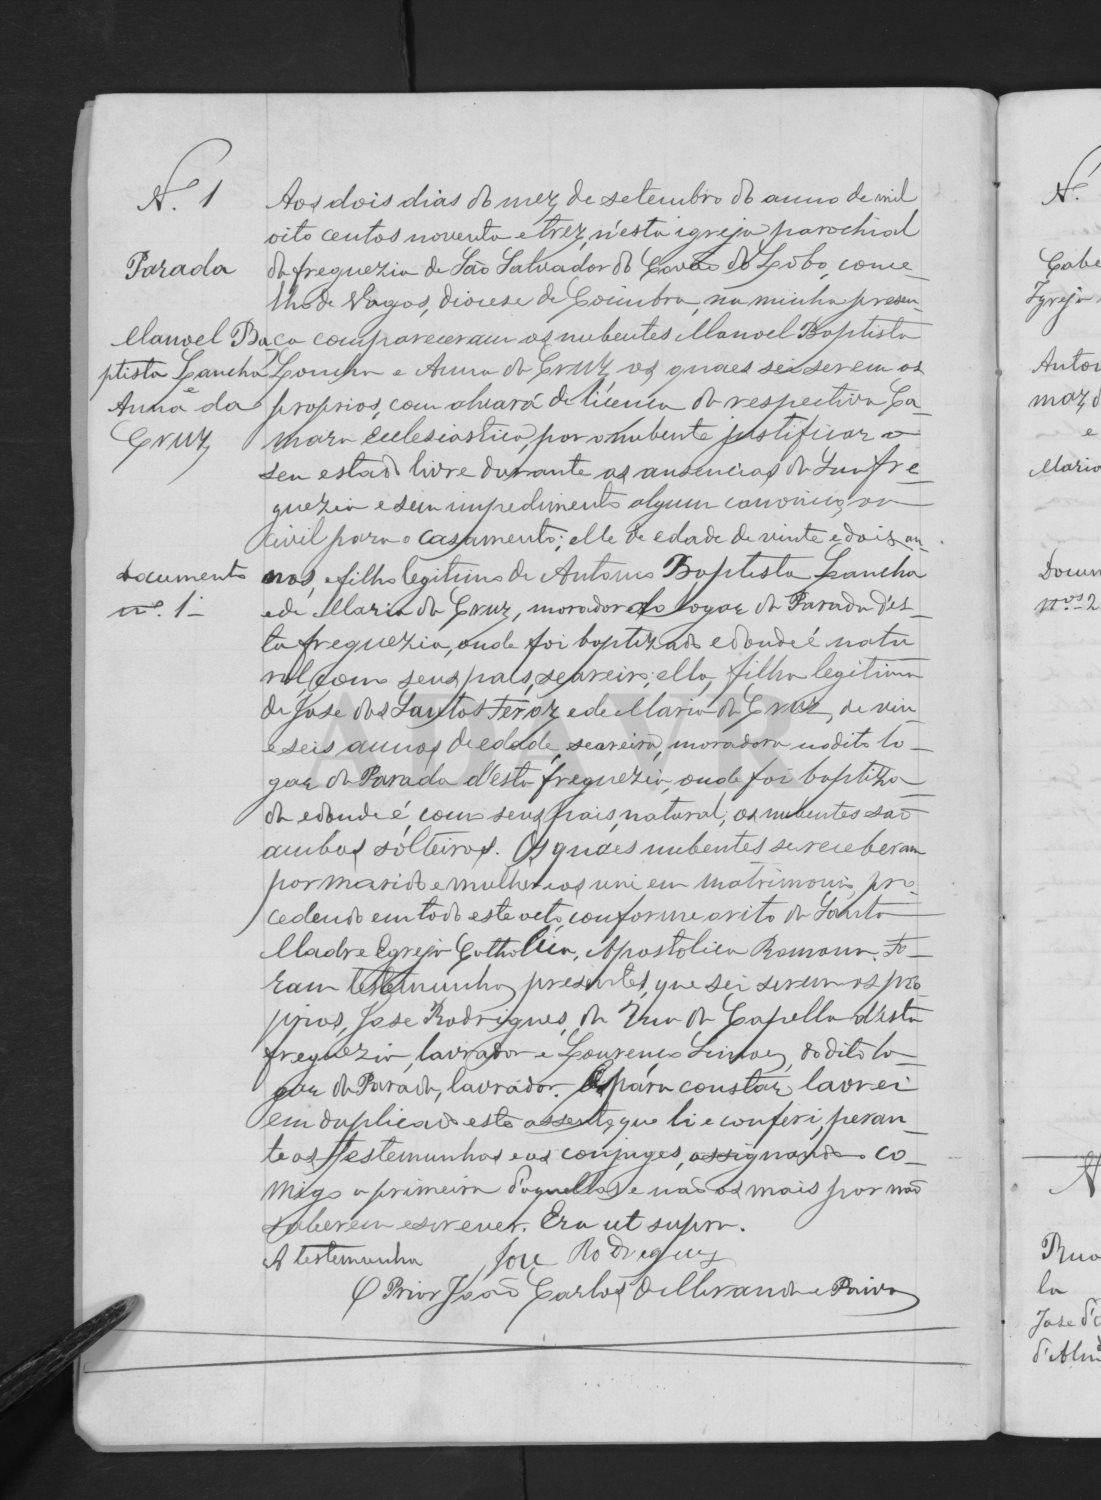 N. 1
Parada
Manoel Ba
ptista Lancha
e
Anna da
Cruz
documento
nº. 1
Aos dois dias do mez de setembro do anno de mil
oito centos noventa e trez, n'esta igreja parochial
da freguezia de São Salvador do Covão do Lobo, conce_
lho de Vagos, diocese de Coimbra, na minha presen_
ça compareceram os nubentes Manoel Baptista
Lancha e Anna da Cruz, os quaes sei serem os
proprios, com alvará de licença da respectiva Ca_
mara Ecclesiastica, por o nubente justificar o
seu estado livre durante as ausencias da sua fre_
guezia e sem impedimento algum canonico ou
civil para o casamento; elle de edade de vinte e dois an_
nos, filho legitimo de Antonio Baptista Lancha
e de Maria da Cruz, morador do logar da Parada d'es_
ta freguezia, onde foi baptizado e donde é natu
ral com seus pais, seareiro; ella, filha legitima
de José dos Santos Feroz e de Maria da Cruz, de vin
e seis annos de edade, seareira, moradora no dito lo_
gar da Parada d'esta freguezia, onde foi baptiza_
da e donde é, com seus pais, natural; os nubentes são
ambos solteiros. Os quaes nubentes se receberam
por marido e mulher e os uni em matrimonio, pro_
cedendo em todo este acto conforme o rito da Santa
Madre Egreja Catholica, Apostolica Romana. Fo_
ram testemunhas presentes, que sei serem os pro_
prios, José Rodrigues, da Rua da Capella d'esta
freguezia, lavrador e Lourenço Simões, do dito lo_
gar da Parada, lavrador. E para constar lavrei
em duplicado este assento, que li e conferi, peran_
te as testemunhas e os conjuges, assignando co_
migo a primeira d'aquellas e não os mais por não
saberem escrever. Era ut supra.
A testemunha José Rodrigues
O Prior João Carlos de Miranda e Paiva
N.
Igreja
e
Maria
Docum
nos 2
N
Rua
la
José d'
ADAVR